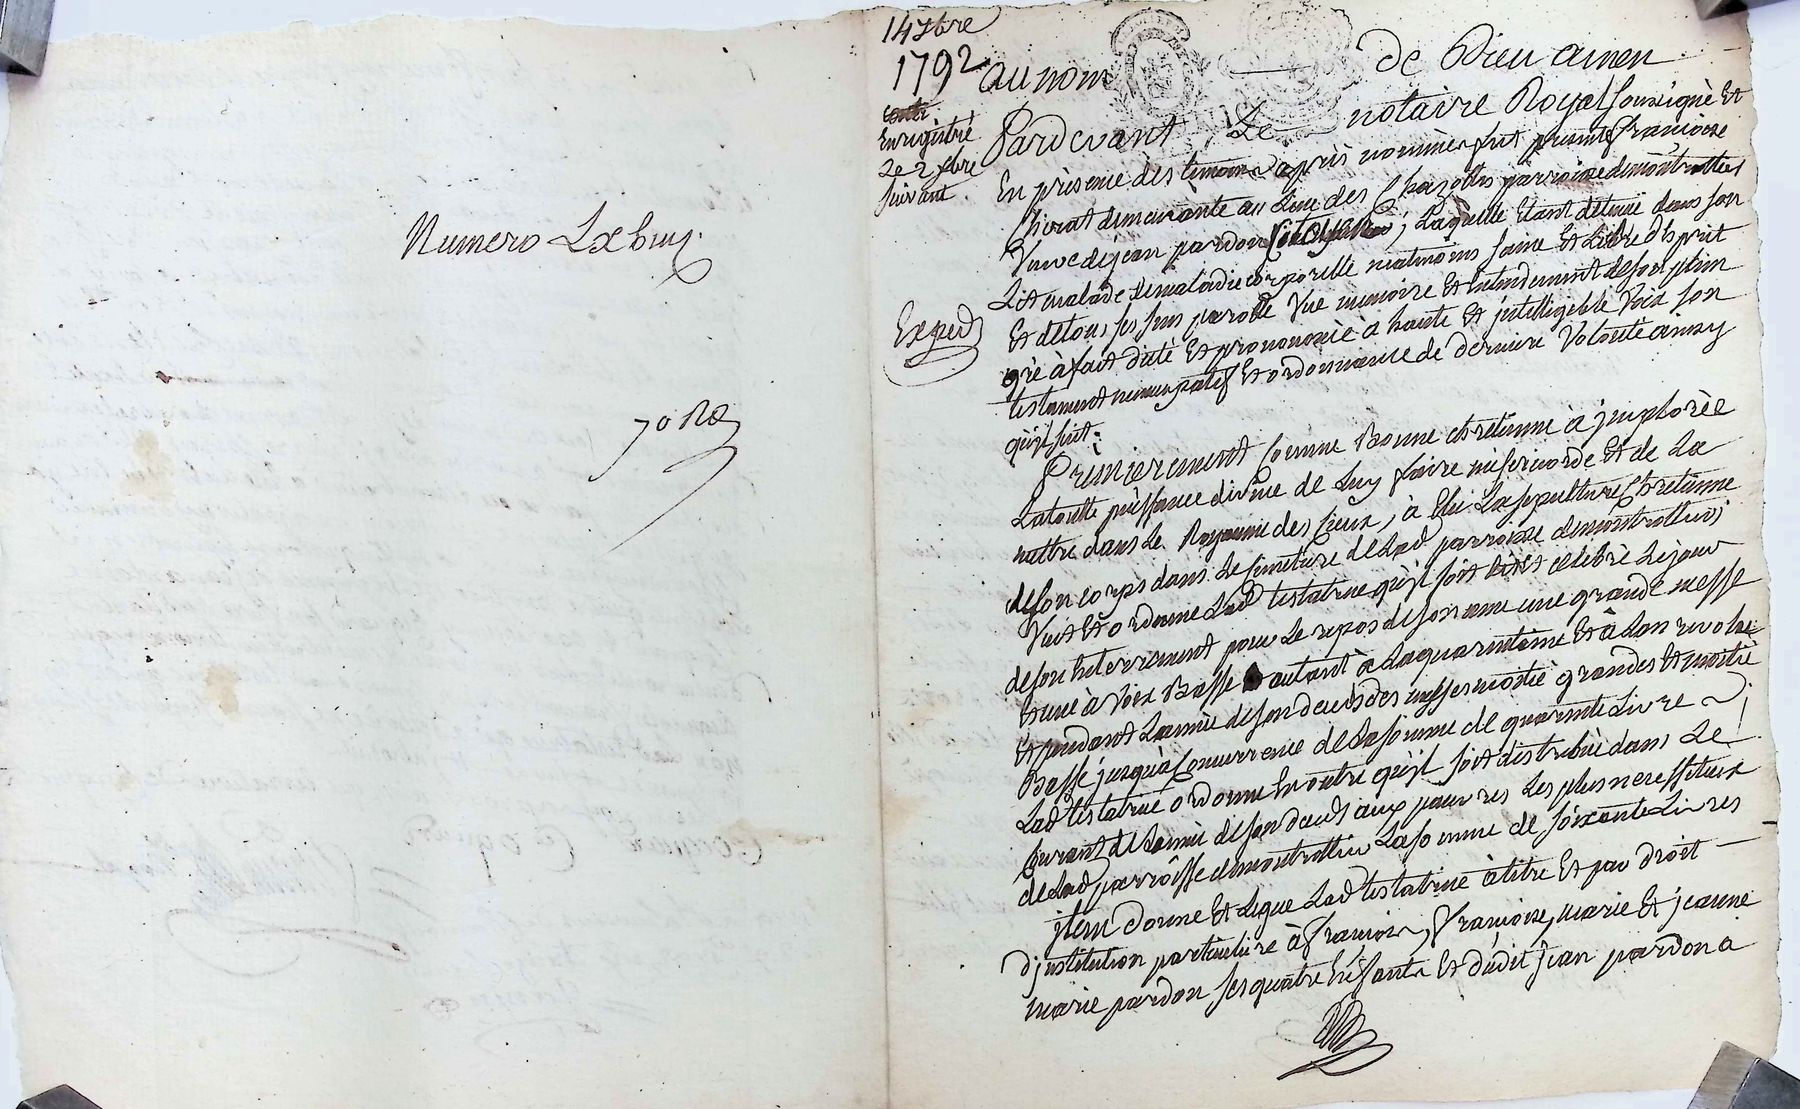 Numero Lxbuy
70 Rd
14 7bre
1792
Enregistré
Le 2 8bre
suivant
Exped
au nom de Dieu amen
Pardevant Le notaire Royal soussigné Et
En presence des temoins apres nommés fut presente francoise
Chirat demeurante au Lieu des parroisse de montrottier
Veuve de jean pardon ; Laquelle Etant detenue dans son
Lit malade de maladie corporelle neatmoins saine Et Libre d'Esprit
Et de tous ses sens parolle Vue memoire Et Entendement de son plein
gré à fait dicté Et prononcée à haute Et jntelligible Voix son
testament nuncupatif Et ordonnance de derniere Volonté ainsy
qu'jl suit :
Premierement comme Bonne chretienne à jmplorée
La toutte puissance divine de Luy faire misericorde Et de La
mettre dans Le Royaume des Cieux, à Elu La sepulture Chretienne
de son corps dans Le simetiere de Lad parroisse de montrottier
Veut Et ordonne Lad testatrice qu'jl soit celebré Le jour
de son Enterrement pour Le repos de son ame une grande messe
Et une à Voix Basse autant à La quarantaine Et à L'an revolu
Et pendant L'année de son deces des messes moitié grandes Et moitié
Basse jusqu'à Concurrence de La somme de quarente Livre
Lad testatrice ordonne En outre qu'jl soit distribué dans Le
Courant de L'année de son deces aux pauvres Les plus necessiteux
de Lad parroisse de montrottier La somme de soixante Livres
jtem donne Et Legue Lad testatrice à titre Et par droit
d'jnstitution particuliere à francois, francoise, marie Et jeanne
marie pardon ses quatre Enfants Et dudit jean pardon a